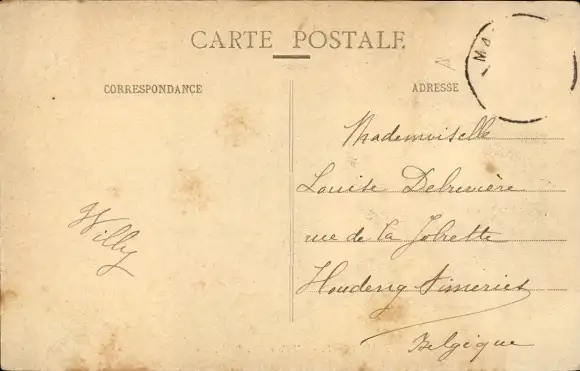 CARTE POSTALE
CORRESPONDANCE
ADRESSE
Mademoiselle
Louise Delrivière
rue de la
Houdeng Aimeries
Belgique
Willy